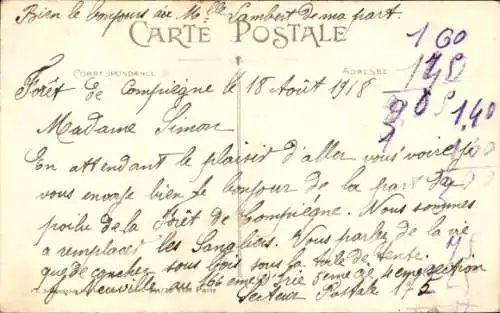 Bien le bonjours au Mlle Lambert de ma part.
CARTE POSTALE
CORRESPONDANCE
ADRESSE
Forêt de Compiègne le 18 Août 1918
Madame Simon
En attendant le plaisir d'aller vous voire je
vous envoye bien le bonjour de la part du
poilu de la Forêt de Compiégne. Nous sommes
a remplacer les Sangliers. Vous parlez de la vie
que de coucher sous bois sous la toile de tente.
Neuville au 166 eme 5eme 4eme section
Secteur Postale 175
1 60
1 40
1.40